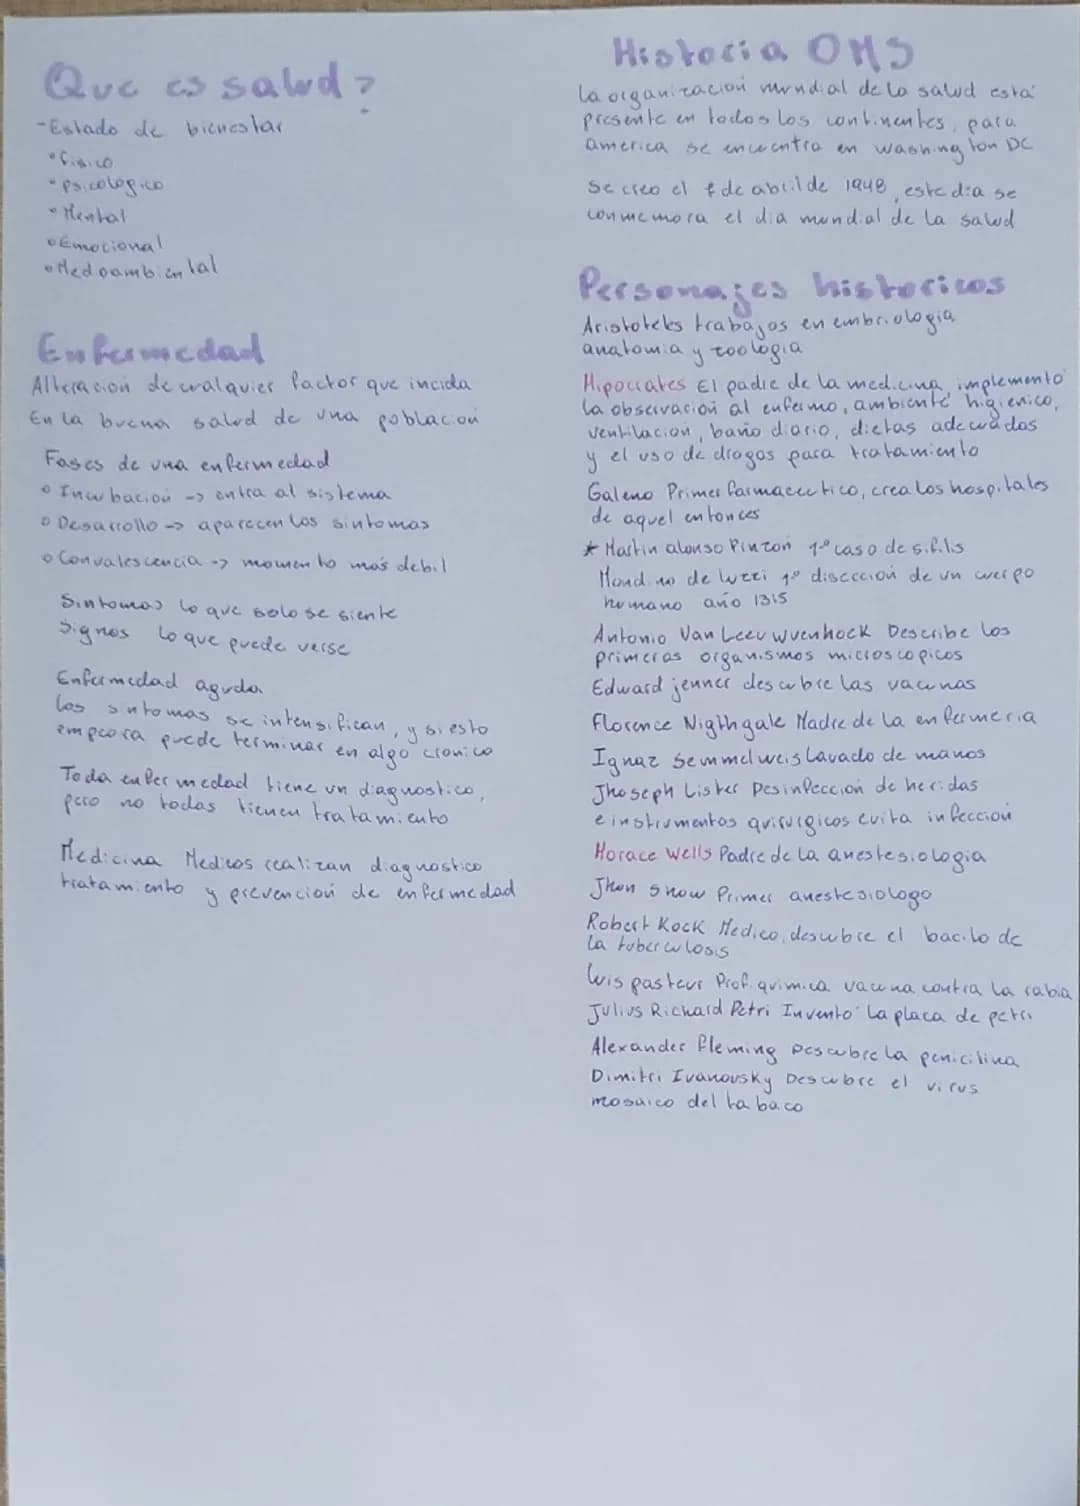 Que es salud?
-Estado de bienestar
•fisico
•psicologico
•Mental
•Emocional
•Medoambiental
Enfermedad
Alteracion de cualquier factor que incida
En la buena salud de una poblacion
Fases de una enfermedad
• Incubacion -> entra al sistema
• Desarrollo -> aparecen los sintomas
• Convalescencia -> momento más debil
Sintomas lo que solo se siente
Signos lo que puede verse
Enfermedad aguda
los sintomas se intensifican, y si esto
empeora puede terminar en algo cronico
Toda enfermedad tiene un diagnostico,
pero no todas tienen tratamiento
Medicina Medicos realizan diagnostico
tratamiento y prevención de enfermedad
Historia OMS
la organización mundial de la salud está
presente en todos los continentes, para
america se encuentra en washington DC
se creo el 7 de abril de 1948, este dia se
conmemora el dia mundial de la salud
Personajes historicos
Aristoteles trabajos en embriologia
anatomia y zoologia
Hipocrates El padre de la medicina, implementó
la observación al enfermo, ambiente higienico,
ventilacion, baño diario, dietas adecuadas
y el uso de drogas para tratamiento
Galeno Primer farmaceutico, crea los hospitales
de aquel entonces
* Martin alonso Pinzon 1º caso de sifilis
Mondino de luzzi 1º disección de un cuerpo
humano año 1315
Antonio Van Leeuwuenhock Describe los
primeros organismos microscopicos
Edward jenner descubre las vacunas
Florence Nigthgale Madre de la enfermeria
Ignaz semmelweis lavado de manos
Jhoseph Lister Desinfección de heridas
e instrumentos quirurgicos evita infección
Horace Wells Padre de la anestesiologia
Jhon snow Primer anestesiologo
Robert Kock Medico, descubre el bacilo de
la tuberculosis
luis pasteur Prof. quimica vacuna contra la rabia
Julius Richard Petri Inventó la placa de petri
Alexander fleming Descubre la penicilina
Dimitri Ivanovsky Descubre el virus
mosaico del tabaco